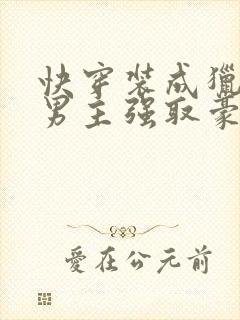 快穿装成猎
男主强取豪
爱在公元前